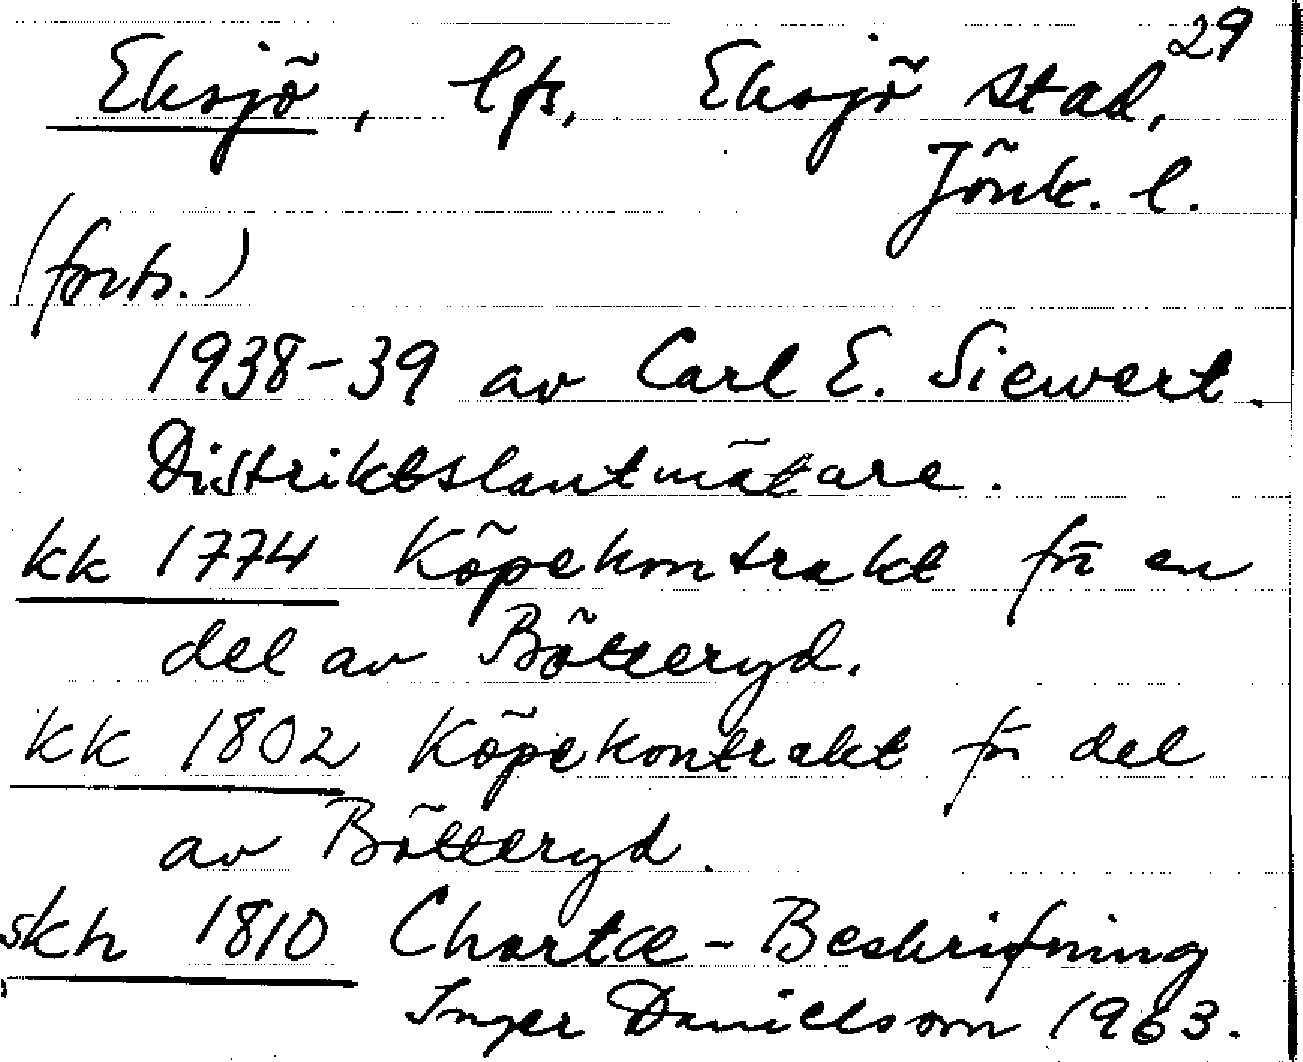 29
Eksjö, lfs, Eksjö stad,
Jönk. l.
(forts.)
1938-39 av Carl E. Siewert.
Distriktslantmätare.
kk 1774 Köpekontrakt för en
del av Bötteryd.
kk 1802 Köpekontrakt för del
av Bötteryd.
skh 1810 Chartæ-Beskrifning
Inger Danielsson 1963.